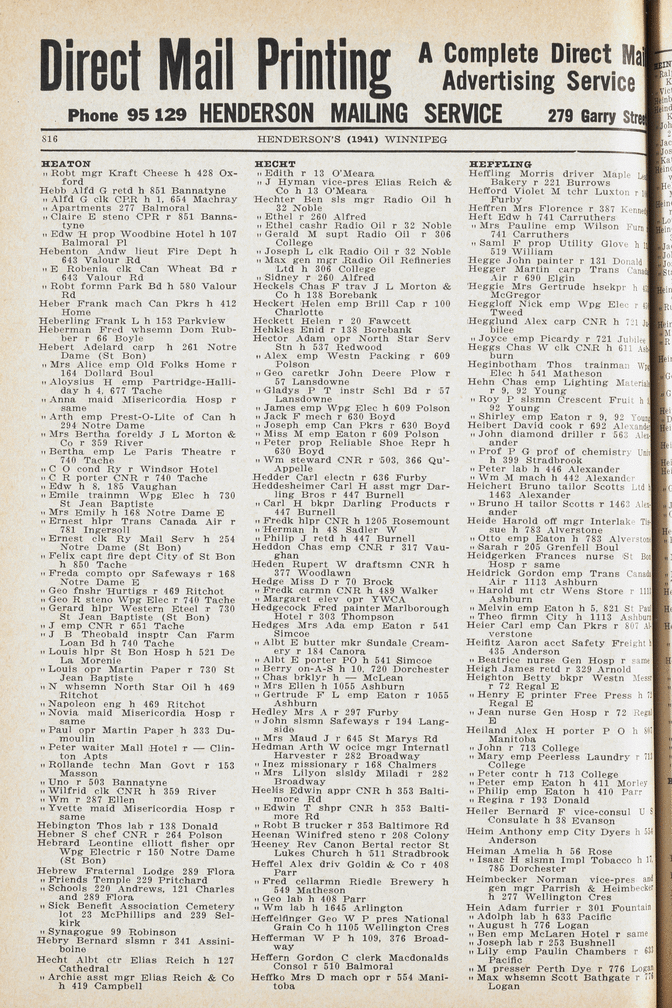 Direct Mail Printing
A Complete Direct Mai
Advertising Service
Phone 95 129 HENDERSON MAILING SERVICE 279 Garry Stree
816
HENDERSON'S (1941) WINNIPEG
HEATON
" Robt mgr Kraft Cheese h 428 Ox-
ford
Hebb Alfd G retd h 851 Bannatyne
" Alfd G clk CPR h 1, 654 Machray
" Apartments 277 Balmoral
" Claire E steno CPR r 851 Banna-
tyne
" Edw H prop Woodbine Hotel h 107
Balmoral Pl
Hebenton Andw lieut Fire Dept h
643 Valour Rd
" E Robenia clk Can Wheat Bd r
643 Valour Rd
" Robt formn Park Bd h 580 Valour
Rd
Heber Frank mach Can Pkrs h 412
Home
Heberling Frank L h 153 Parkview
Heberman Fred whsemn Dom Rub-
ber r 66 Boyle
Hebert Adelard carp h 261 Notre
Dame (St Bon)
" Mrs Alice emp Old Folks Home r
164 Dollard Boul
" Aloysius H emp Partridge-Halli-
day h 4, 677 Tache
" Anna maid Misericordia Hosp r
same
" Arth emp Prest-O-Lite of Can h
294 Notre Dame
" Mrs Bertha foredly J L Morton &
Co r 359 River
" Bertha emp Le Paris Theatre r
740 Tache
" C O cond Ry r Windsor Hotel
" C R porter CNR r 740 Tache
" Edw h 8, 185 Vaughan
" Emile trainmn Wpg Elec h 730
St Jean Baptiste
" Mrs Emily h 168 Notre Dame E
" Ernest hlpr Trans Canada Air r
781 Ingersoll
" Ernest clk Ry Mail Serv h 254
Notre Dame (St Bon)
" Felix capt fire dept City of St Bon
h 850 Tache
" Freda compto opr Safeways r 168
Notre Dame E
" Geo fnshr Hurtigs r 469 Ritchot
" Geo R steno Wpg Elec r 740 Tache
" Gerard hlpr Western Steel r 730
St Jean Baptiste (St Bon)
" J emp CNR r 651 Tache
" J B Theobald insptr Can Farm
Loan Bd h 740 Tache
" Louis hlpr St Bon Hosp h 521 De
La Morenie
" Louis opr Martin Paper r 730 St
Jean Baptiste
" N whsemn North Star Oil h 469
Ritchot
" Napoleon eng h 469 Ritchot
" Novia maid Misericordia Hosp r
same
" Paul opr Martin Paper h 333 Du-
moulin
" Peter waiter Mall Hotel r — Clin-
ton Apts
" Rollande techn Man Govt r 153
Masson
" Uno r 503 Bannatyne
" Wilfrid clk CNR h 359 River
" Wm r 287 Ellen
" Yvette maid Misericordia Hosp r
same
Hebington Thos lab r 138 Donald
Hebner S chef CNR r 264 Polson
Hebrard Leontine elliott fisher opr
Wpg Electric r 150 Notre Dame
(St Bon)
Hebrew Fraternal Lodge 289 Flora
" Friends Temple 229 Pritchard
" Schools 220 Andrews, 121 Charles
and 289 Flora
" Sick Benefit Association Cemetery
lot 23 McPhillips and 239 Sel-
kirk
" Synagogue 99 Robinson
Hebry Bernard slsmn r 341 Assini-
boine
Hecht Albt ctr Elias Reich h 127
Cathedral
" Archie asst mgr Elias Reich & Co
h 419 Campbell
HECHT
" Edith r 13 O'Meara
" J Hyman vice-pres Elias Reich &
Co h 13 O'Meara
Hechter Ben sls mgr Radio Oil h
32 Noble
" Ethel r 260 Alfred
" Ethel cashr Radio Oil r 32 Noble
" Gerald M supt Radio Oil r 306
College
" Joseph L clk Radio Oil r 32 Noble
" Max gen mgr Radio Oil Refineries
Ltd h 306 College
" Sidney r 260 Alfred
Heckels Chas F trav J L Morton &
Co h 138 Borebank
Heckert Helen emp Brill Cap r 100
Charlotte
Heckett Helen r 20 Fawcett
Hehkles Enid r 138 Borebank
Hector Adam opr North Star Serv
Stn h 537 Redwood
" Alex emp Westn Packing r 609
Polson
" Geo caretkr John Deere Plow r
57 Lansdowne
" Gladys P T instr Schl Bd r 57
Lansdowne
" James emp Wpg Elec h 609 Polson
" Jack F mech r 630 Boyd
" Joseph emp Can Pkrs r 630 Boyd
" Miss M emp Eaton r 609 Polson
" Peter prop Reliable Shoe Repr h
630 Boyd
" Wm steward CNR r 503, 366 Qu'-
Appelle
Hedder Carl electn r 636 Furby
Heddesheimer Carl H asst mgr Dar-
ling Bros r 447 Burnell
" Carl H bkpr Darling Products r
447 Burnell
" Fredk hlpr CNR h 1205 Rosemount
" Herman h 48 Sadler W
" Philip J retd h 447 Burnell
Heddon Chas emp CNR r 317 Vau-
ghan
Heden Rupert W draftsmn CNR h
377 Woodlawn
Hedge Miss D r 70 Brock
" Fredk carmn CNR h 489 Walker
" Margaret elev opr YWCA
Hedgecock Fred painter Marlborough
Hotel r 303 Thompson
Hedges Mrs Ada emp Eaton r 541
Simcoe
" Albt E butter mkr Sundale Cream-
ery r 184 Canora
" Albt E porter PO h 541 Simcoe
" Berry on-A-S h 10, 720 Dorchester
" Chas brklyr h — McLean
" Mrs Ellen h 1055 Ashburn
" Gertrude F L emp Eaton r 1055
Ashburn
Hedley Mrs A r 297 Furby
" John slsmn Safeways r 194 Lang-
side
" Mrs Maud J r 645 St Marys Rd
Hedman Arth W ocice mgr Internatl
Harvester r 282 Broadway
" Inez missionary r 168 Chalmers
" Mrs Lilyon slsldy Miladi r 282
Broadway
Heelis Edwin appr CNR h 353 Balti-
more Rd
" Edwin T shpr CNR h 353 Balti-
more Rd
" Robt B trucker r 353 Baltimore Rd
Heenan Winifred steno r 208 Colony
Heeney Rev Canon Bertal rector St
Lukes Church h 511 Stradbrook
Heffel Alex driv Goldin & Co r 408
Parr
" Fred cellarmn Riedle Brewery h
549 Matheson
" Geo lab h 408 Parr
" Wm lab h 1645 Arlington
Heffelfinger Geo W P pres National
Grain Co h 1105 Wellington Cres
Hefferman W P h 109, 376 Broad-
way
Heffern Gordon C clerk Macdonalds
Consol r 510 Balmoral
Heffko Mrs D mach opr r 554 Mani-
toba
HEFFLING
Heffling Morris driver Maple
Bakery r 221 Burrows
Hefford Violet M tchr Luxton r
Furby
Heffren Mrs Florence r 387
Heft Edw h 741 Carruthers
" Mrs Pauline emp Wilson
741 Carruthers
" Saml F prop Utility Glove h
519 William
Hegge John painter r 131 Donald
Hegger Martin carp Trans
Air r 690 Elgin
Heggie Mrs Gertrude hsekpr h
McGregor
Heggloff Nick emp Wpg Elec r
Tweed
Hegglund Alex carp CNR h 721
bilee
" Joyce emp Picardy r 721 Jubilee
Heggs Chas W clk CNR h 611
burn
Heginbotham Thos trainman
Elec h 541 Matheson
Hehn Chas emp Lighting
r 9, 92 Young
" Roy P slsmn Crescent Fruit h
92 Young
" Shirley emp Eaton r 9, 92 Young
Heibert David cook r 692
" John diamond driller r 563
ander
" Prof P G prof of chemistry
h 399 Stradbrook
" Peter lab h 446 Alexander
" Wm M mach h 442 Alexander
Heichert Bruno tailor Scotts Ltd
1463 Alexander
" Bruno H tailor Scotts r 1463
ander
Heide Harold off mgr Interlake
sue h 783 Alverstone
" Otto emp Eaton h 783
" Sarah r 205 Grenfell Boul
Heidgerken Frances nurse St
Hosp r same
Heidrick Gordon emp Trans
Air r 1113 Ashburn
" Harold mt ctr Wens Store r
Ashburn
" Melvin emp Eaton h 5, 821
" Theo firmn City h 1113 Ashburn
Heier Carl emp Can Pkrs r 807
verstone
Heifitz Aaron acct Safety Freight
435 Anderson
" Beatrice nurse Gen Hosp r same
Heigh James retd r 329 Arnold
Heighton Betty bkpr Westn
r 72 Regal E
" Henry E printer Free Press h
Regal E
" Jean nurse Gen Hosp r 72
E
Heiland Alex H porter P O h
Manitoba
" John r 713 College
" Mary emp Peerless Laundry r
College
" Peter contr h 713 College
" Peter emp Eaton h 411 Morley
" Philip emp Eaton h 410 Parr
" Regina r 193 Donald
Heiler Bernard F vice-consul U S
Consulate h 38 Evanson
Heim Anthony emp City Dyers h
Anderson
Heiman Amelia h 56 Rose
" Isaac H slsmn Impl Tobacco h
785 Dorchester
Heimbecker Norman vice-pres and
gen mgr Parrish & Heimbecker
h 277 Wellington Cres
Hein Adam furrier r 301 Fountain
" Adolph lab h 633 Pacific
" August h 776 Logan
" Ben emp McLaren Hotel r same
" Joseph lab r 253 Bushnell
" Lily emp Paulin Chambers r
Pacific
" M presser Perth Dye r 776 Logan
" Max whsemn Scott Bathgate r
Logan